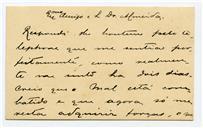 Amigo e Sr. Dr. Almeida.
Respondi de hontem pelo te-
lephone que me sentia per-
feitamente, como realmen-
te me sinto ha dois dias.
Creio que o mal está com-
batido e que agora só me
resta adquirir forças, o